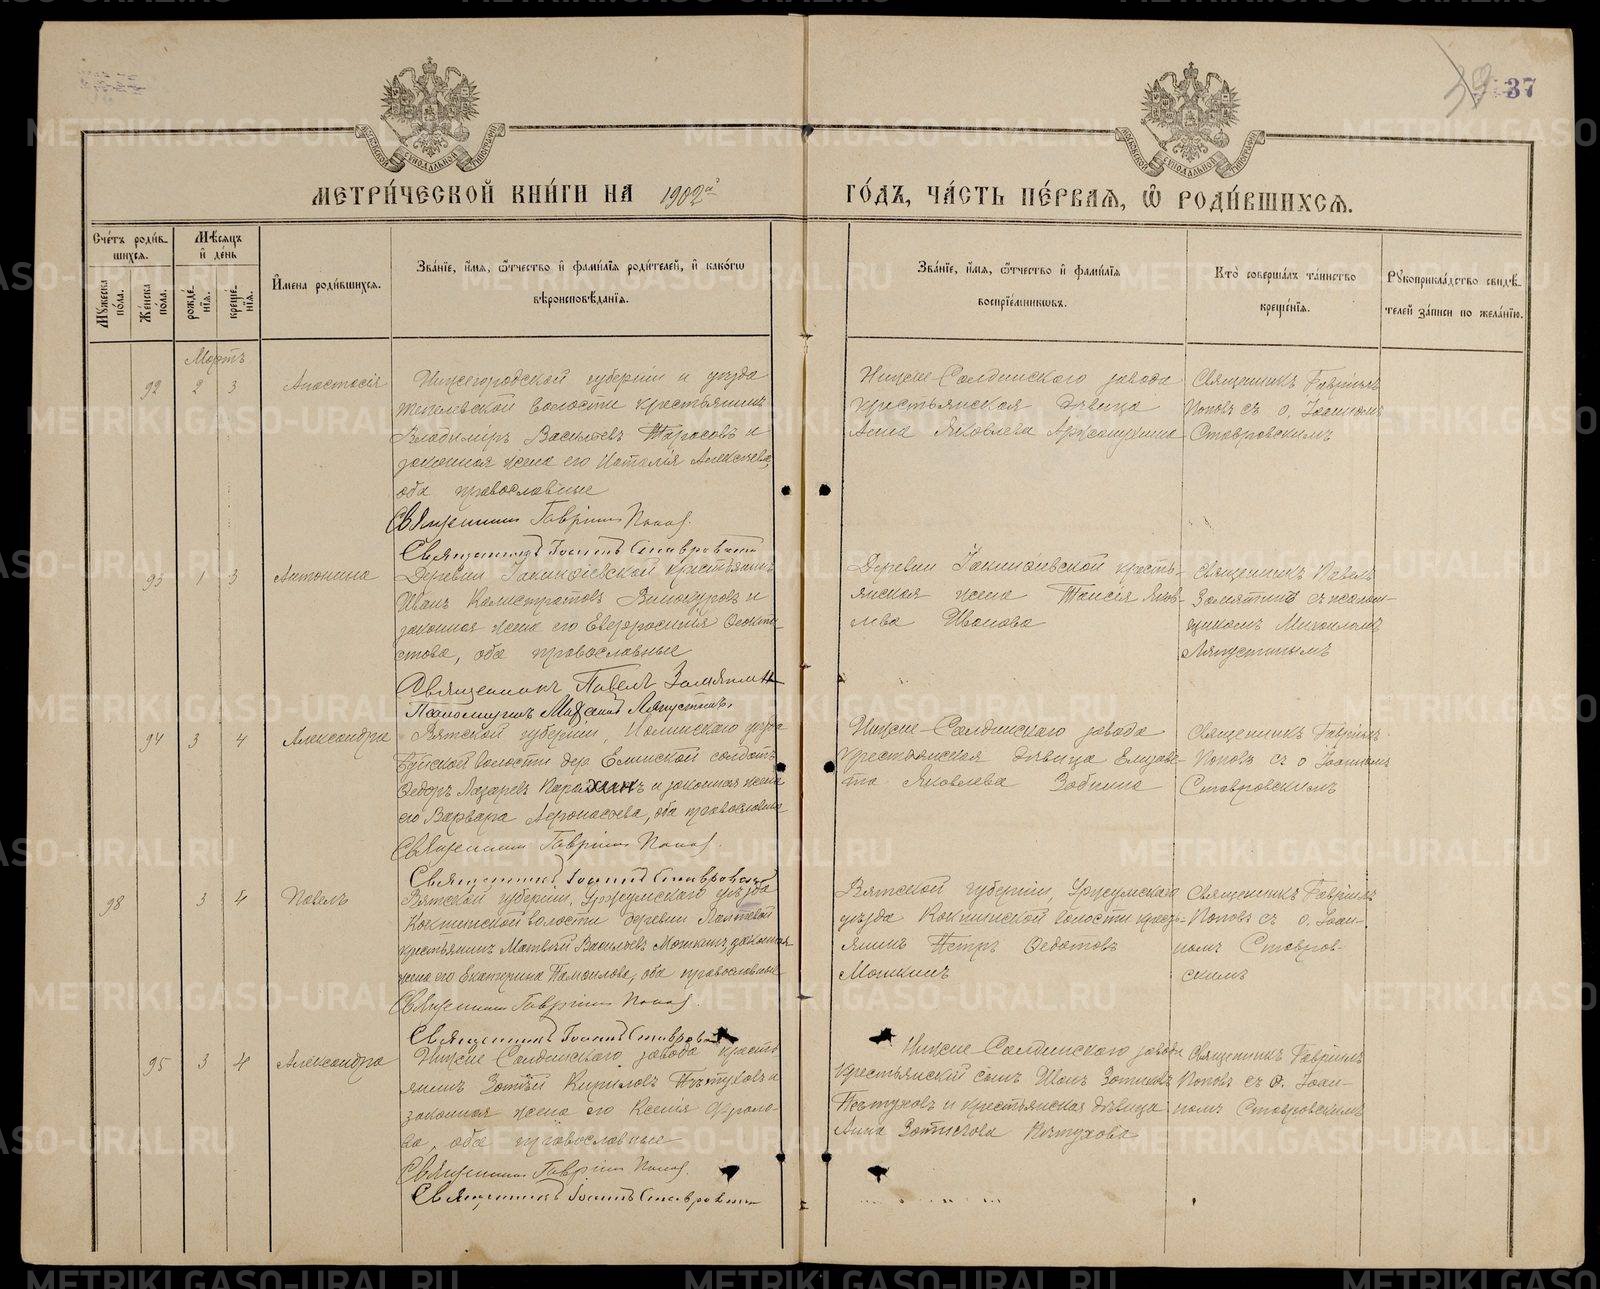 37
МЕТРИ́ЧЕСКОЙ КНИ́ГИ НА 1902й ГО́ДЪ, ЧА́СТЬ ПЕ́РВАЯ, Ѽ РОДИ́ВШИХСЯ.
Сче́тъ роди́в-
шихся.
Мꙋжеска по́ла.
Же́нска по́ла.
Мѣ́сяцъ
и҆ де́нь
рожде́-нїя.
креще́-нїя.
И҆мена роди́вшихся.
Зва́нїе, и҆́мя, ѻ҆́тчество и҆ фами́лїя роди́телей, и҆ како́гѡ
вѣроисповѣ́данїя.
Зва́нїе, и҆́мя, ѻ҆́тчество и҆ фами́лїя
воспрїе́мникѡвъ.
Кто̀ соверша́лъ та́инство
креще́нїя.
Рꙋкоприкла́дство свидѣ́-
телей за́писи по жела́нїю.
Мартъ
92 2 3 Анастасія
Нижегородской губерніи и уѣзда
волости крестьянинъ
Владиміръ Васильевъ Тарасовъ и
законная жена его Наталія Алексѣева,
оба православные
Священникъ Гавріилъ Поповъ.
Священникъ Іоаннъ Ставровскій
Нижне-Салдинскаго завода
крестьянская дѣвица
Анна Яковлева
Священникъ Гавріилъ
Поповъ съ о. Іоанномъ
Ставровскимъ
93 1 3 Антонина
Деревни Іакинфіевской крестьянинъ
Иванъ Калистратовъ Винокуровъ и
законная жена его Евфросинія Ѳеокти-
стова, оба православные
Священникъ Павелъ Замятинъ
Псаломщикъ Михаилъ Ляпустинъ.
Деревни Іакинфіевской кресть-
янская жена Таисія Яков-
лева Иванова
Священникъ Павелъ
Замятинъ съ псалом-
щикомъ Михаиломъ
Ляпустинымъ
94 3 4 Александра
Вятской губерніи, Нолинскаго уѣзда
Буйской волости дер Елинской солдатъ
Ѳедоръ Лазаревъ и законная жена
его Варвара Аѳонасьева, оба православные
Священникъ Гавріилъ Поповъ.
Священникъ Іоаннъ Ставровскій
Нижне-Салдинскаго завода
крестьянская дѣвица Елизаве-
та Яковлева Зобнина
Священникъ Гавріилъ
Поповъ съ о Іоанномъ
Ставровскимъ
98 3 4 Павелъ
Вятской губерніи, Уржумскаго уѣзда
Кокшинской волости деревни Лаптевой
крестьянинъ Матвѣй Васильевъ Мошкинъ, законная
жена его Екатерина оба православные
Священникъ Гавріилъ Поповъ.
Священникъ Іоаннъ Ставровскій
Вятской губерніи, Уржумскаго
уѣзда Кокшинской волости кресть-
янинъ Петръ Ѳедотовъ
Мошкинъ
Священникъ Гавріилъ
Поповъ съ о. Іоан-
номъ Ставров-
скимъ
95 3 4 Александра
Нижне Салдинскаго завода кресть-
янинъ Зотѣй Кириловъ Пѣтуховъ и
законная жена его Ксенія Фроло-
ва, оба православные
Священникъ Гавріилъ Поповъ.
Священникъ Іоаннъ Ставровскій
Нижне Салдинскаго завода
крестьянскій сынъ Иванъ Зотиковъ
Пѣтуховъ и крестьянская дѣвица
Анна Зотикова Пѣтухова
Священникъ Гавріилъ
Поповъ съ о. Іоан-
номъ Ставровскимъ
METRIKI.GASO-URAL.RU